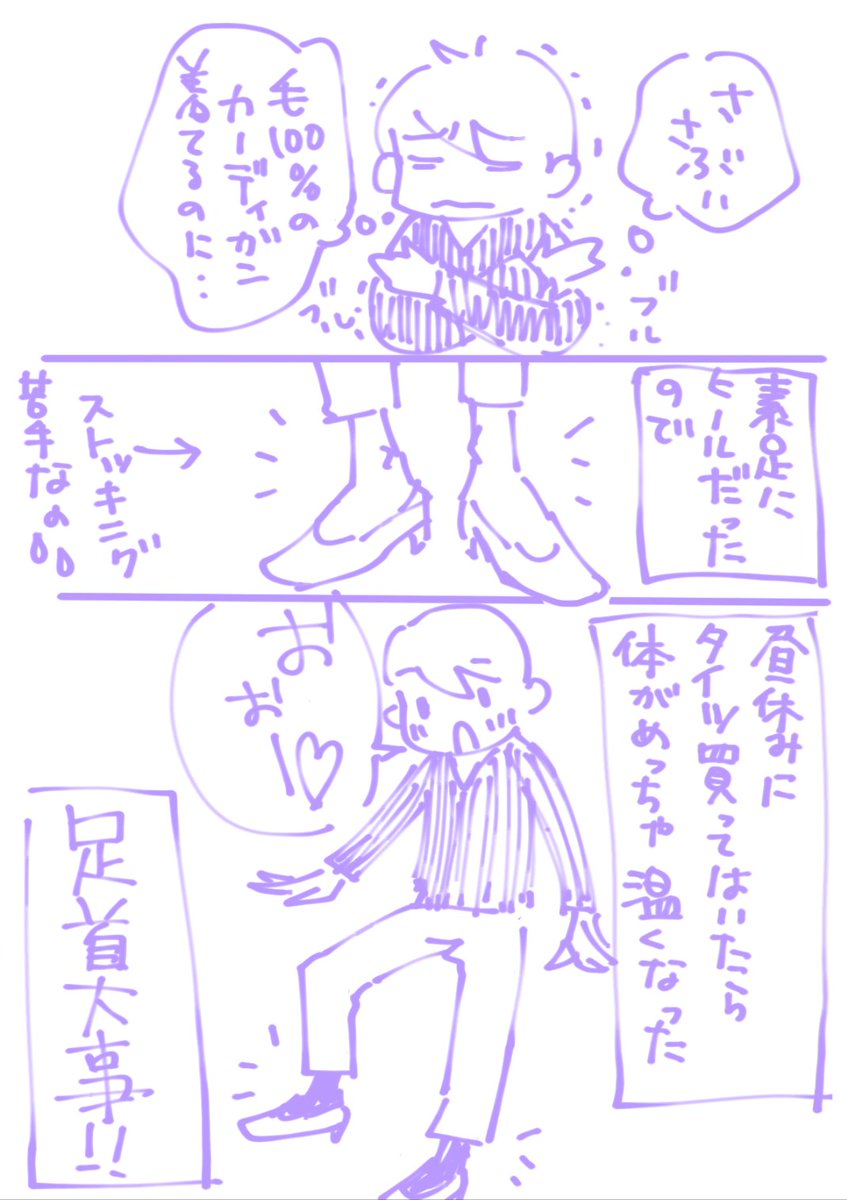 さ
さぶい
ブル
毛100%の
カーディガン
着てるのに‥
ブル
素足に
ヒールだった
ので
ストッキング
苦手なの
昼休みに
タイツ買ってはいたら
体がめっちゃ温くなった
おおー♡
足首大事!!